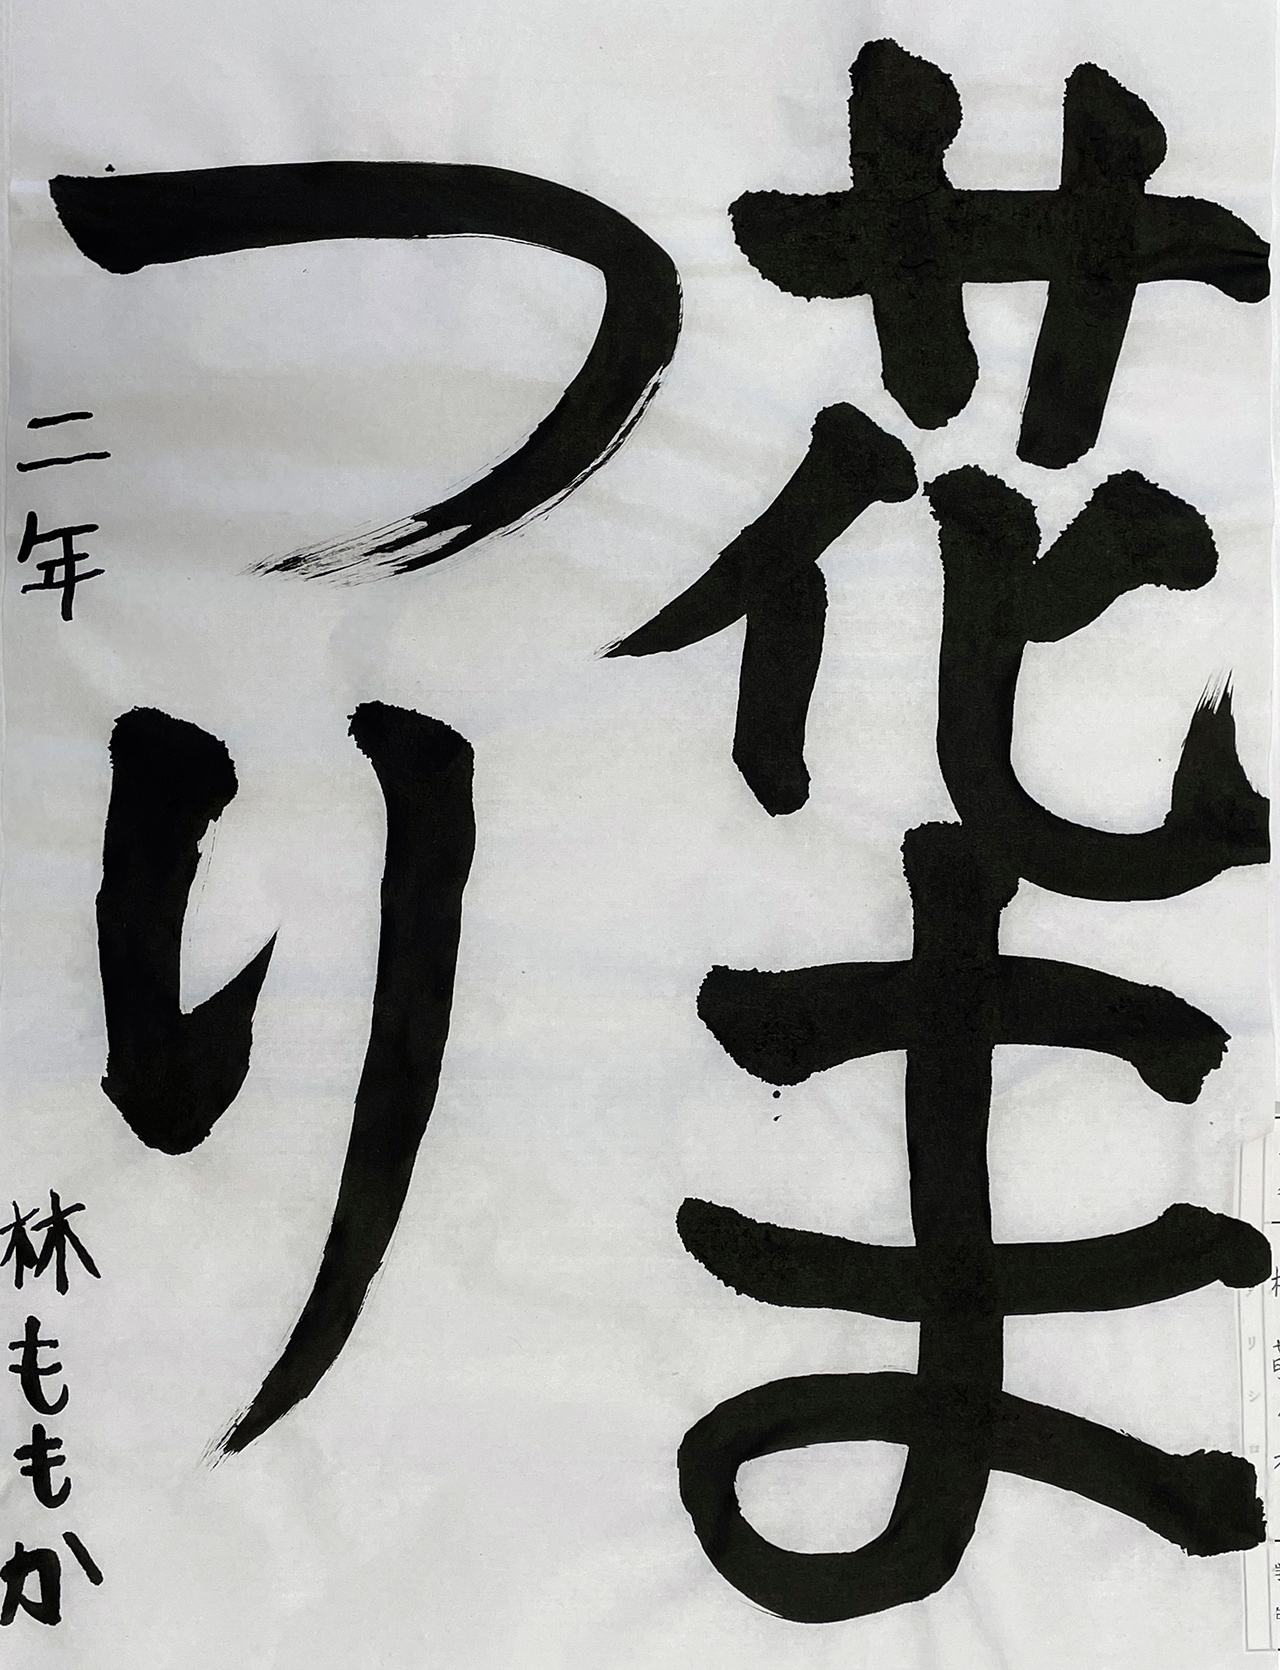 花ま
つり
二年 林ももか